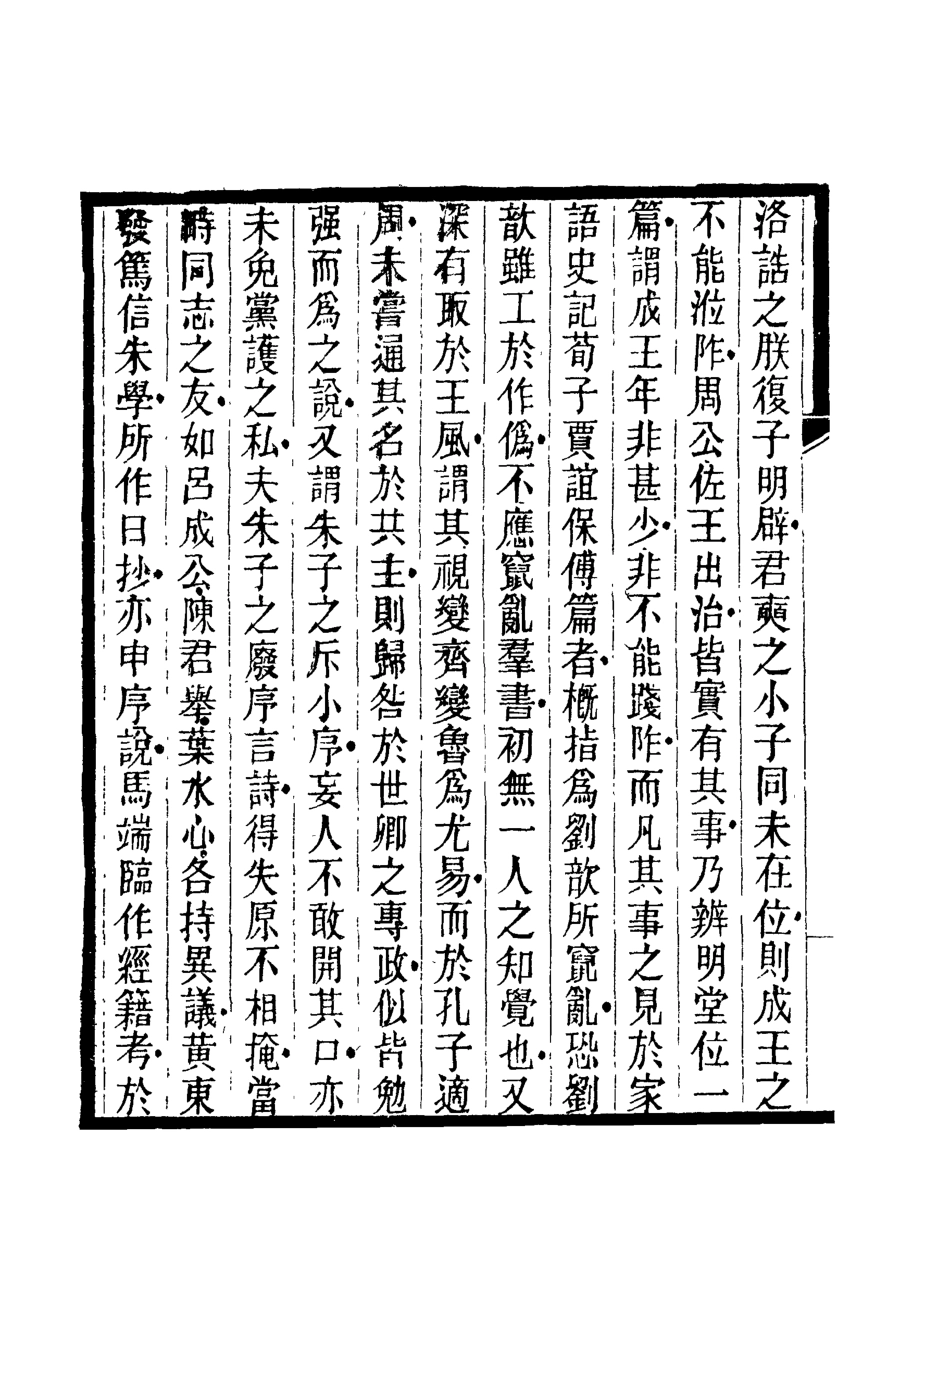 洛誥之朕復子明辟君奭之小子同未在位則成王之
不能涖阼周公佐王出治皆實有其事乃辨明堂位一
篇謂成王年非甚少非不能踐阼而凡其事之見於家
語史記荀子賈誼保傅篇者概指爲劉歆所竄亂恐劉
歆雖工於作僞不應竄亂羣書初無一人之知覺也又
深有取於王風謂其視變齊變魯爲尤易而於孔子適
周未嘗通其名於共主則歸咎於世卿之專政似皆勉
强而爲之說又謂朱子之斥小序妄人不敢開其口亦
未免黨護之私夫朱子之廢序言詩得失原不相掩當
時同志之友如呂成公陳君舉葉水心各持異議黄東
發篤信朱學所作日抄亦申序說馬端臨作經籍考於